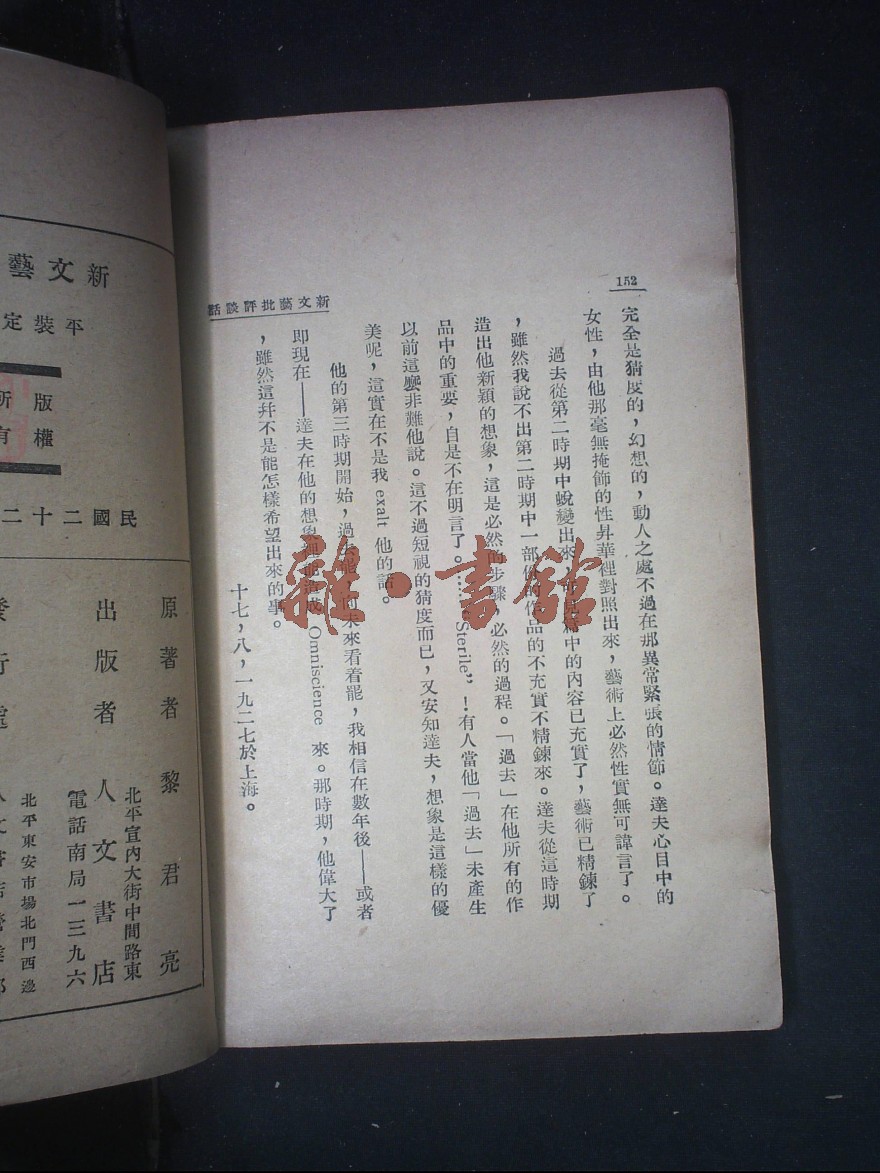 152
新文藝批評談話
完全是猜度的，幻想的，動人之處不過在那異常緊張的情節。達夫心目中的
女性，由他那毫無掩飾的性昇華裡對照出來，藝術上必然性實無可諱言了。
過去從第二時期中蛻變出來，中的內容已充實了，藝術已精鍊了
，雖然我說不出第二時期中一部份的作品的不充實不精鍊來。達夫從這時期
造出他新穎的想象，這是必然的步驟，必然的過程。「過去」在他所有的作
品中的重要，自是不在明言了。……“Sterile”！有人當他「過去」未產生
以前這麼非難他說。這不過短視的猜度而已，又安知達夫，想象是這樣的優
美呢，這實在不是我 exalt 他的話。
他的第三時期開始，過去 向未來看着罷，我相信在數年後——或者
即現在——達夫在他的想象 造成 Omniscience 來。那時期，他偉大了
，雖然這幷不是能怎樣希望出來的事。
十七，八，一九二七於上海。
新文藝
平裝定
版權
所有
民國二十二
原著者 黎君亮
出版者 人文書店
北平宣內大街中間路東
電話南局一三九六
發行處 人文書店營業部
北平東安市場北門西邊
雜·書館